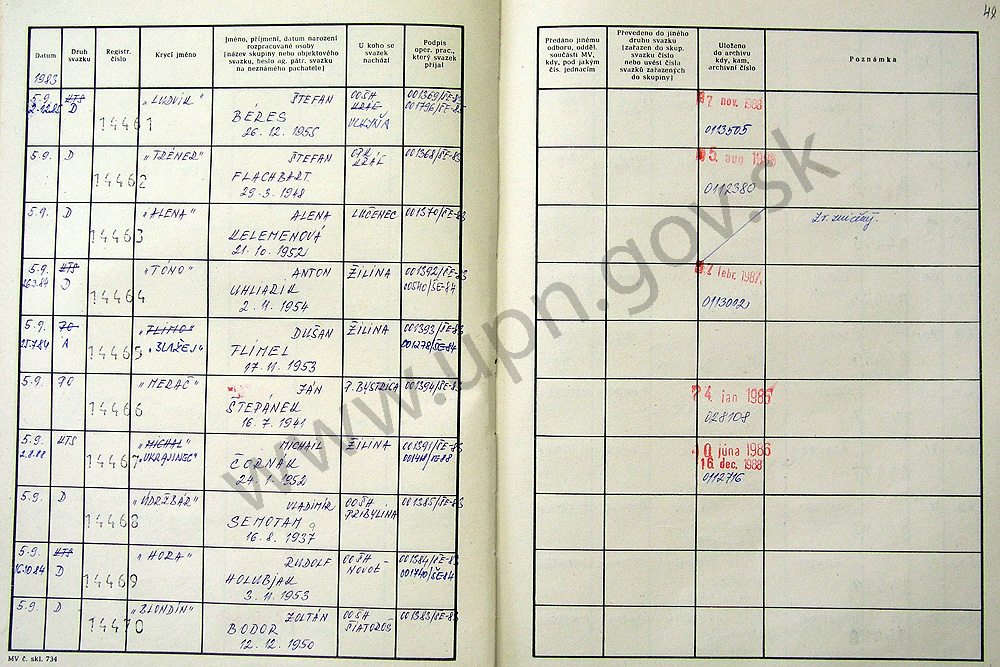 49
Datum
Druh svazku
Registr. číslo
Krycí jméno
Jméno, příjmení, datum narození
rozpracované osoby
(název skupiny nebo objektového
svazku, heslo ag. pátr. svazku
na neznámého pachatele)
U koho se
svazek
nachází
Podpis
oper. prac.,
který svazek
přijal
Předáno jinému
odboru, odděl.
součásti MV,
kdy, pod jakým
čís. jednacím
Převedeno do jiného
druhu svazku
(zařazen do skup.
svazku číslo
nebo uvést čísla
svazků zařazených
do skupiny)
Uloženo
do archivu
kdy, kam,
archivní číslo
Poznámka
1983
5.9. KTS "LUDVIK" ŠTEFAN OOŠH 001369/ŠE-83
D KRÁĽ 001796/ŠE-85
14461 BÉREŠ VLKYŇA
26.12.1955
7 nov. 1988
0113505
5.9. D "TRÉNER" ŠTEFAN KRÁĽ 001368/ŠE-83
14462 FLACHBART
29.3.1948
5. aug
0112380
5.9. D "ALENA" ALENA LUČENEC 001370/ŠE-83
14463 KELEMENOVÁ
21.10.1952
5.9. KTS "TÓNO" ANTON ŽILINA 001392/ŠE-83
26.3.84 D 00540/ŠE-84
14464 UHLIARIK
2.11.1954
febr. 1987
0113092
5.9. TO "FLIMO" DUŠAN ŽILINA 001393/ŠE-83
25.7.84 A "BLAŽEJ" 001278/ŠE-84
14465 FLIMEL
17.11.1953
5.9. TO "MERAČ" JÁN P. BYSTRICA 001394/ŠE-83
14466 ŠTEPÁNEK
16.7.1941
4. jan 1986
028108
5.9. KTS "MICHAL" MICHAIL ŽILINA 001391/ŠE-83
2.8.88 "UKRAJINEC"
14467 ČORNAK
24.1.1952
10 júna 1986
16. dec. 1988
0112716
5.9. D "ÚDRŽBÁR" VLADIMÍR OOŠH 001385/ŠE-83
14468 SEMOTAM PRIBYLINA
16.8.1937
5.9. KTS "HORA" RUDOLF OOŠH 001384/ŠE-83
16.10.84 D NOVOŤ 001740/ŠE-84
14469 HOLUBJAK
3.11.1953
5.9. D "BLONDÍN" ZOLTÁN OOŠH 001383/ŠE-83
14470 BODOR ŠIATOROŠ
12.12.1950
MV č. skl. 734
www.upn.gov.sk